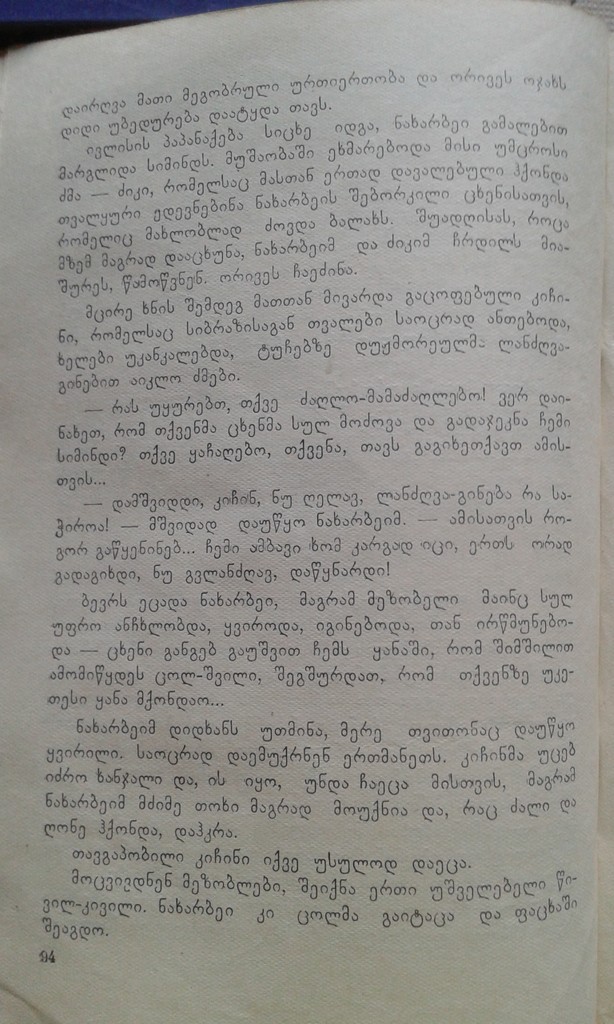 დაირღვა მათი მეგობრული ურთიერთობა და ორივეს ოჯახს
დიდი უბედურება დაატყდა თავს.
ივლისის პაპანაქება სიცხე იდგა, ნახარბეი გამალებით
მარგლიდა სიმინდს. მუშაობაში ეხმარებოდა მისი უმცროსი
ძმა — ძიკი, რომელსაც მასთან ერთად დავალებული ჰქონდა
თვალყური ედევნებინა ნახარბეის შებორკილი ცხენისათვის,
რომელიც მახლობლად ძოვდა ბალახს. შუადღისას, როცა
მზემ მაგრად დააცხუნა, ნახარბეიმ და ძიკიმ ჩრდილს მია-
შურეს, წამოწვნენ. ორივეს ჩაეძინა.
მცირე ხნის შემდეგ მათთან მივარდა გაცოფებული კიჩი-
ნი, რომელსაც სიბრაზისაგან თვალები საოცრად ანთებოდა,
ხელები უკანკალებდა, ტუჩებზე დუჟმორეულმა ლანძღვა-
გინებით აიკლო ძმები.
— რას უყურებთ, თქვე ძაღლო-მამაძაღლებო! ვერ დაი-
ნახეთ, რომ თქვენმა ცხენმა სულ მოძოვა და გადაჯეკნა ჩემი
სიმინდი? თქვე ყაჩაღებო, თქვენა, თავს გაგიხეთქავთ ამის-
თვის...
— დამშვიდდი, კიჩინ, ნუ ღელავ, ლანძღვა-გინება რა სა-
ჭიროა! — მშვიდად დაუწყო ნახარბეიმ. — ამისათვის რო-
გორ გაწყენინებ... ჩემი ამბავი ხომ კარგად იცი, ერთს ორად
გადაგიხდი, ნუ გვლანძღავ, დაწყნარდი!
ბევრს ეცადა ნახარბეი, მაგრამ მეზობელი მაინც სულ
უფრო ანჩხლობდა, ყვიროდა, იგინებოდა, თან ირწმუნებო-
და — ცხენი განგებ გაუშვით ჩემს ყანაში, რომ შიმშილით
ამომიწყდეს ცოლ-შვილი, შეგშურდათ, რომ თქვენზე უკე-
თესი ყანა მქონდაო...
ნახარბეიმ დიდხანს უთმინა, მერე თვითონაც დაუწყო
ყვირილი. საოცრად დაემუქრნენ ერთმანეთს. კიჩინმა უცებ
იძრო ხანჯალი და, ის იყო, უნდა ჩაეცა მისთვის, მაგრამ
ნახარბეიმ მძიმე თოხი მაგრად მოუქნია და, რაც ძალი და
ღონე ჰქონდა, დაჰკრა.
თავგაპობილი კიჩინი იქვე უსულოდ დაეცა.
მოცვივდნენ მეზობლები, შეიქნა ერთი უშველებელი წი-
ვილ-კივილი. ნახარბეი კი ცოლმა გაიტაცა და ფაცხაში
შეაგდო.
94